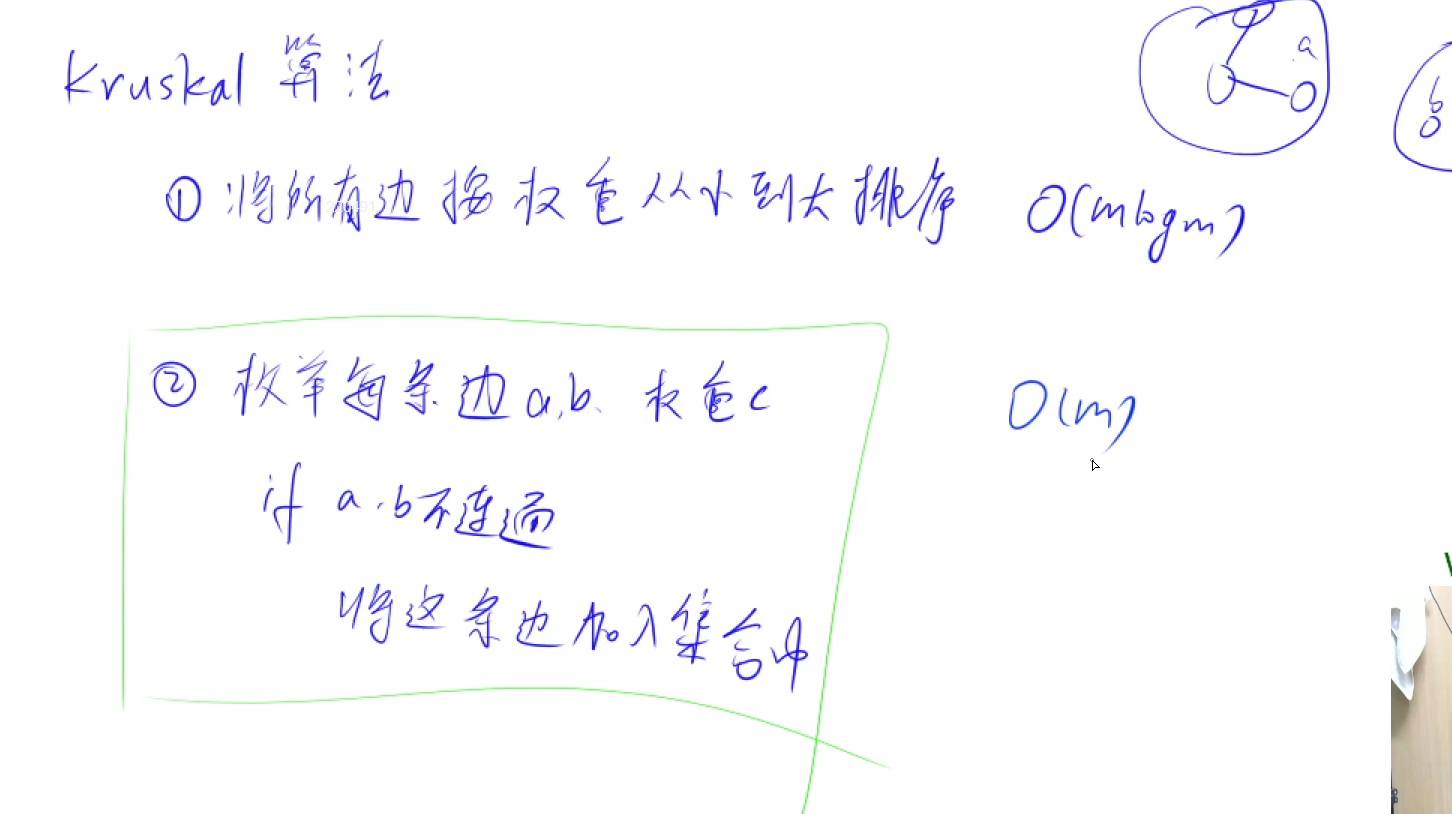 Kruskal 算法
a
b
① 将所有边按权重从小到大排序 O(mlogm)
② 枚举每条边a,b、权重c O(m)
if a,b不连通
将这条边加入集合中